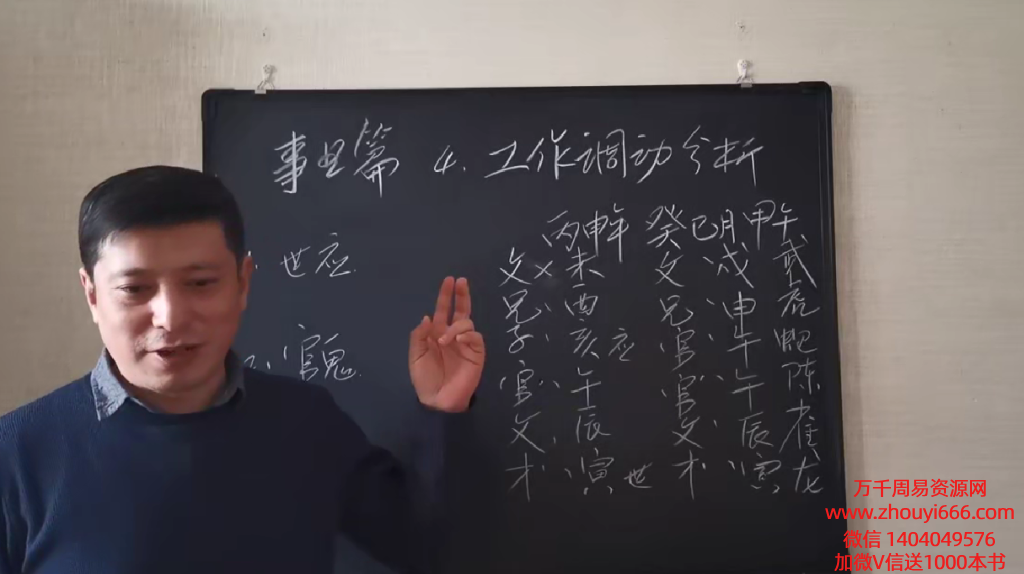 事业篇 4. 工作调动分析
世应
官鬼
丙申年 癸巳月 甲午
父 × 未 父 、 戌 武
兄 、 酉 兄 、、 申 虎
子 、 亥 应 官 、 午 蛇
官 、、 午 官 、、 午 陈
父 、 辰 父 、 辰 雀
才 、、 寅 世 才 、、 寅 龙
万千周易资源网
www.zhouyi666.com
微信 1404049576
加微V信送1000本书